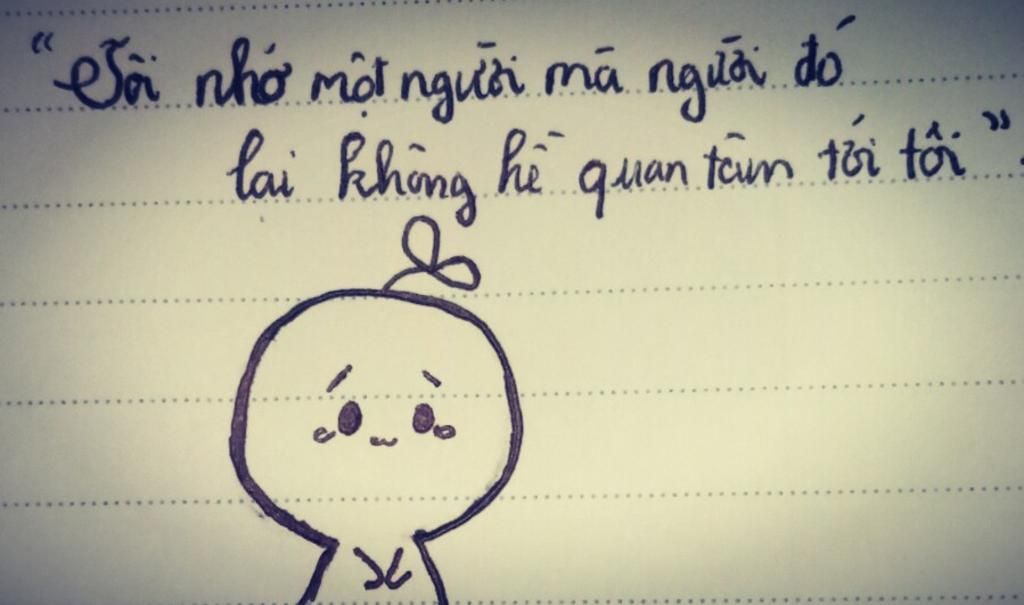 “Tôi nhớ một người mà người đó
lại không hề quan tâm tới tôi”.